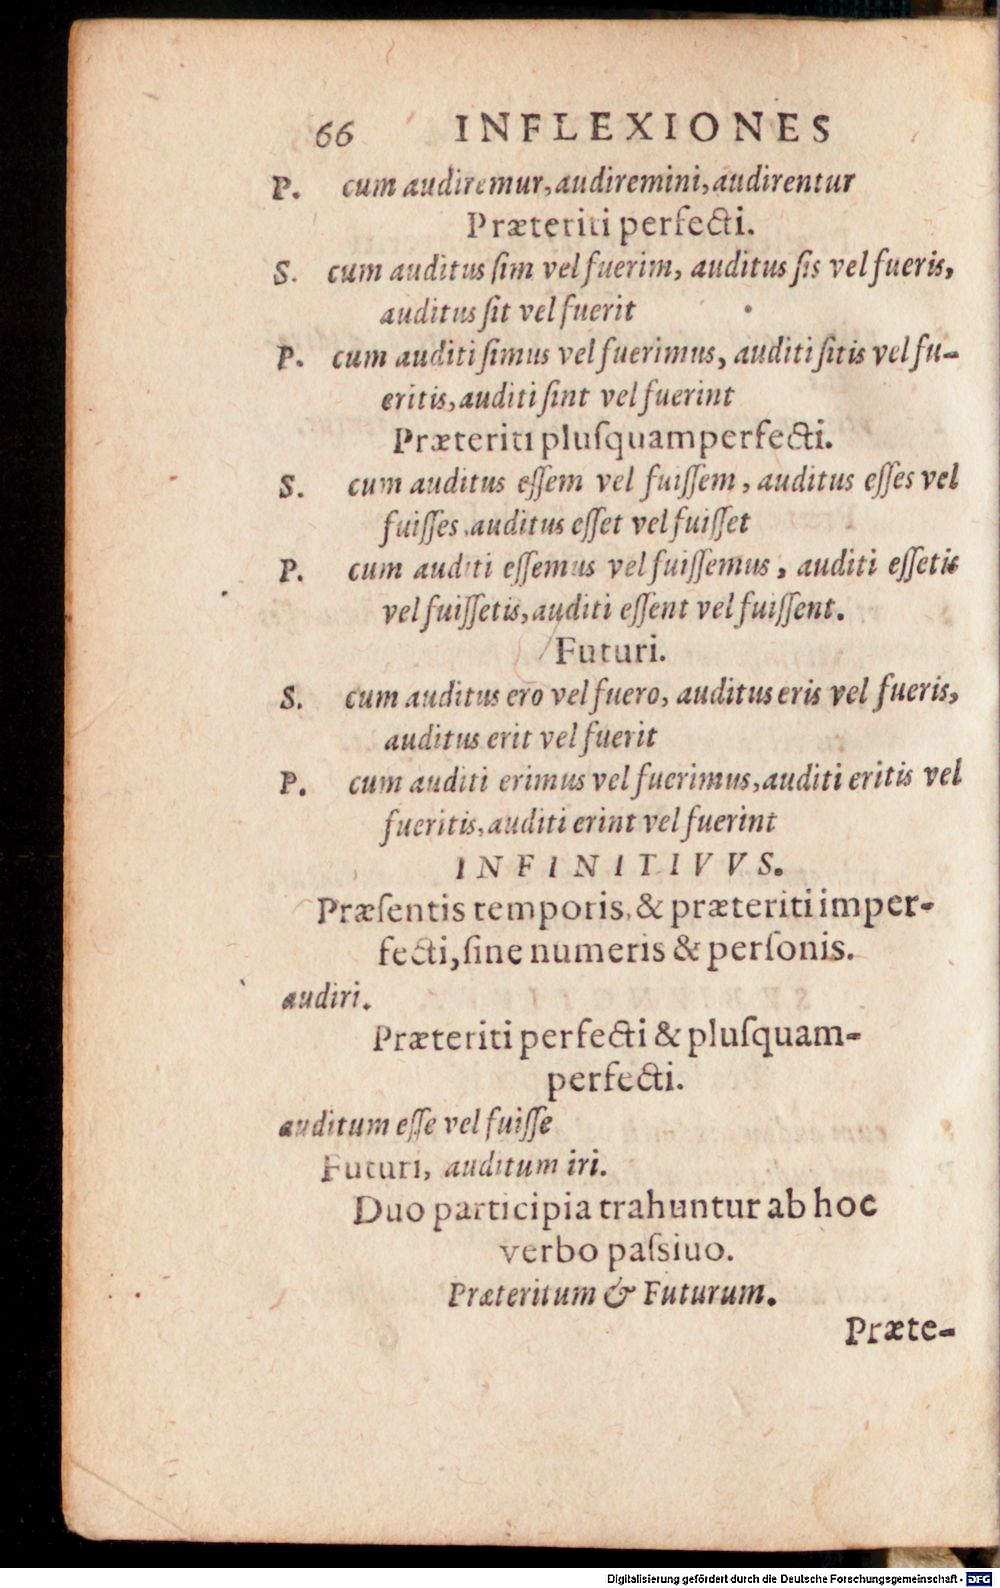 66 INFLEXIONES
P. cum audiremur, audiremini, audirentur
Præteriti perfecti.
S. cum auditus ſim vel fuerim, auditus ſis vel fueris,
auditus ſit vel fuerit
P. cum auditi ſimus vel fuerimus, auditi ſitis vel fu-
eritis, auditi ſint vel fuerint
Præteriti pluſquamperfecti.
S. cum auditus eſſem vel fuiſſem, auditus eſſes vel
fuiſſes, auditus eſſet vel fuiſſet
P. cum auditi eſſemus vel fuiſſemus, auditi eſſetis
vel fuiſſetis, auditi eſſent vel fuiſſent.
Futuri.
S. cum auditus ero vel fuero, auditus eris vel fueris,
auditus erit vel fuerit
P. cum auditi erimus vel fuerimus, auditi eritis vel
fueritis, auditi erint vel fuerint
INFINITIVVS.
Præſentis temporis, & præteriti imper-
fecti, ſine numeris & perſonis.
audiri.
Præteriti perfecti & pluſquam-
perfecti.
auditum eſſe vel fuiſſe
Futuri, auditum iri.
Duo participia trahuntur ab hoc
verbo paſsiuo.
Præteritum & Futurum.
Præte-
Digitalisierung gefördert durch die Deutsche Forschungsgemeinschaft - DFG